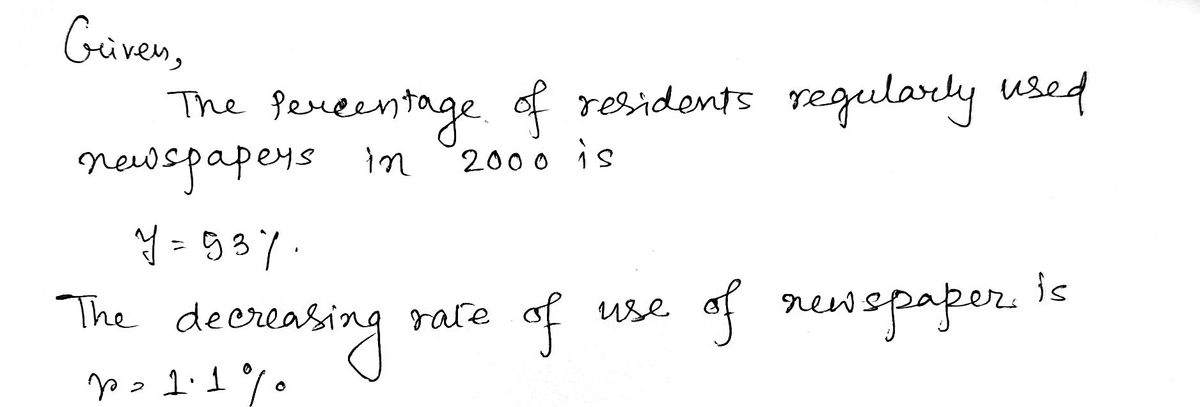 Given,
The Percentage of residents regularly used
newspapers in 2000 is
y = 53%.
The decreasing rate of use of newspaper is
r = 1.1%